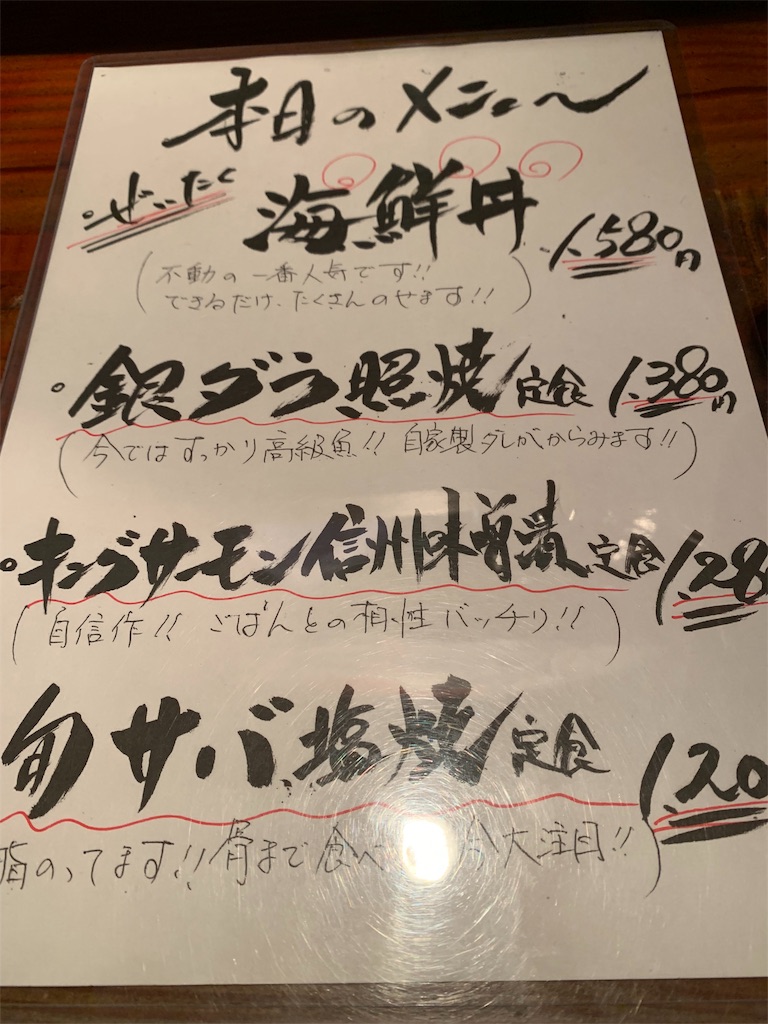 本日のメニュー
ぜいたく
海鮮丼 1,580円
(不動の一番人気です!!
できるだけ、たくさんのせます!!)
銀ダラ照焼定食 1,380円
(今ではすっかり高級魚!! 自家製タレがからみます!!)
キングサーモン信州味噌漬定食 1,28
(自信作!! ごはんとの相性バッチリ!!)
旬サバ塩焼定食 1,20
脂のってます!! 骨まで食べ 大注目!!)